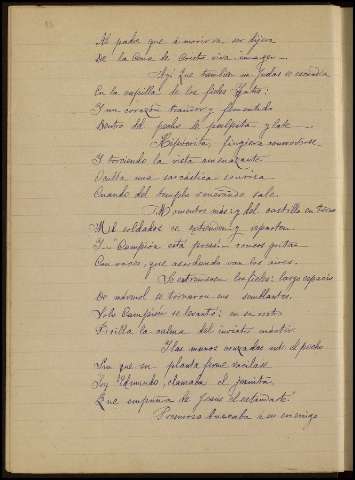 Al padre que á morir va ser dijera
De la Cena de Cristo viva imagen...
Ay! que tambien un Judas se escondia
En la capilla de los fieles Yates:
Y un corazón traidor y fementido
Dentro del pecho le palpita y late...
Hipócrita, fingiera conmoverse
Y torciendo la vista amenazante
Oculta una sarcástica sonrisa
Cuando del templo venerando sale.
Momentos más y del castillo en torno
Mil soldados se extienden y reparten
Y "Campion está preso" roncos gritan
Con voces, que asordando van los aires.
Se extremecen los fieles: largo espacio
De mármol se tornaron sus semblantes.
Sólo Campion se levantó: en su rostro
Brilla la calma del invicto mártir.
Y las manos cruzadas ante el pecho
Sin que su planta firme vacilase
Soy Edmundo, clamaba el jesuita
Que empuña de Jesús el estandarte.
Presuroso buscaba a su enemigo